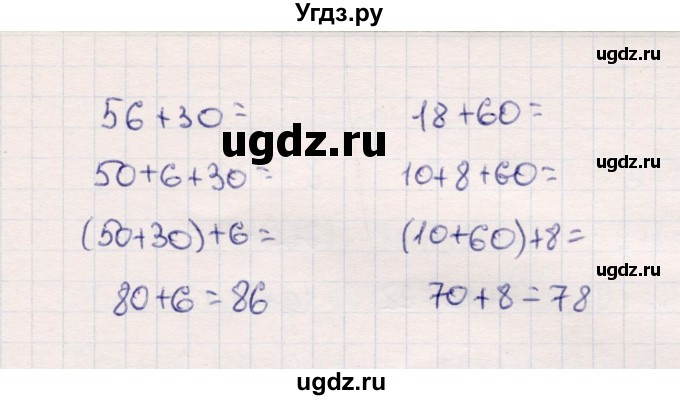 Угдз.ру
ugdz.ru
56+30=
50+6+30=
(50+30)+6=
80+6=86
ugdz.ru
18+60=
10+8+60=
(10+60)+8=
70+8=78
ugdz.ru
ugdz.ru